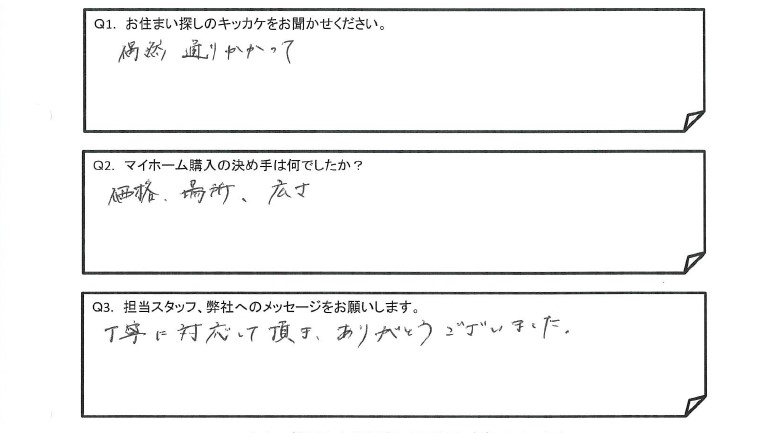 Q1. お住まい探しのキッカケをお聞かせください。
偶然 通りかかって
Q2. マイホーム購入の決め手は何でしたか？
価格、場所、広さ
Q3. 担当スタッフ、弊社へのメッセージをお願いします。
丁寧に対応して頂き、ありがとうございました。